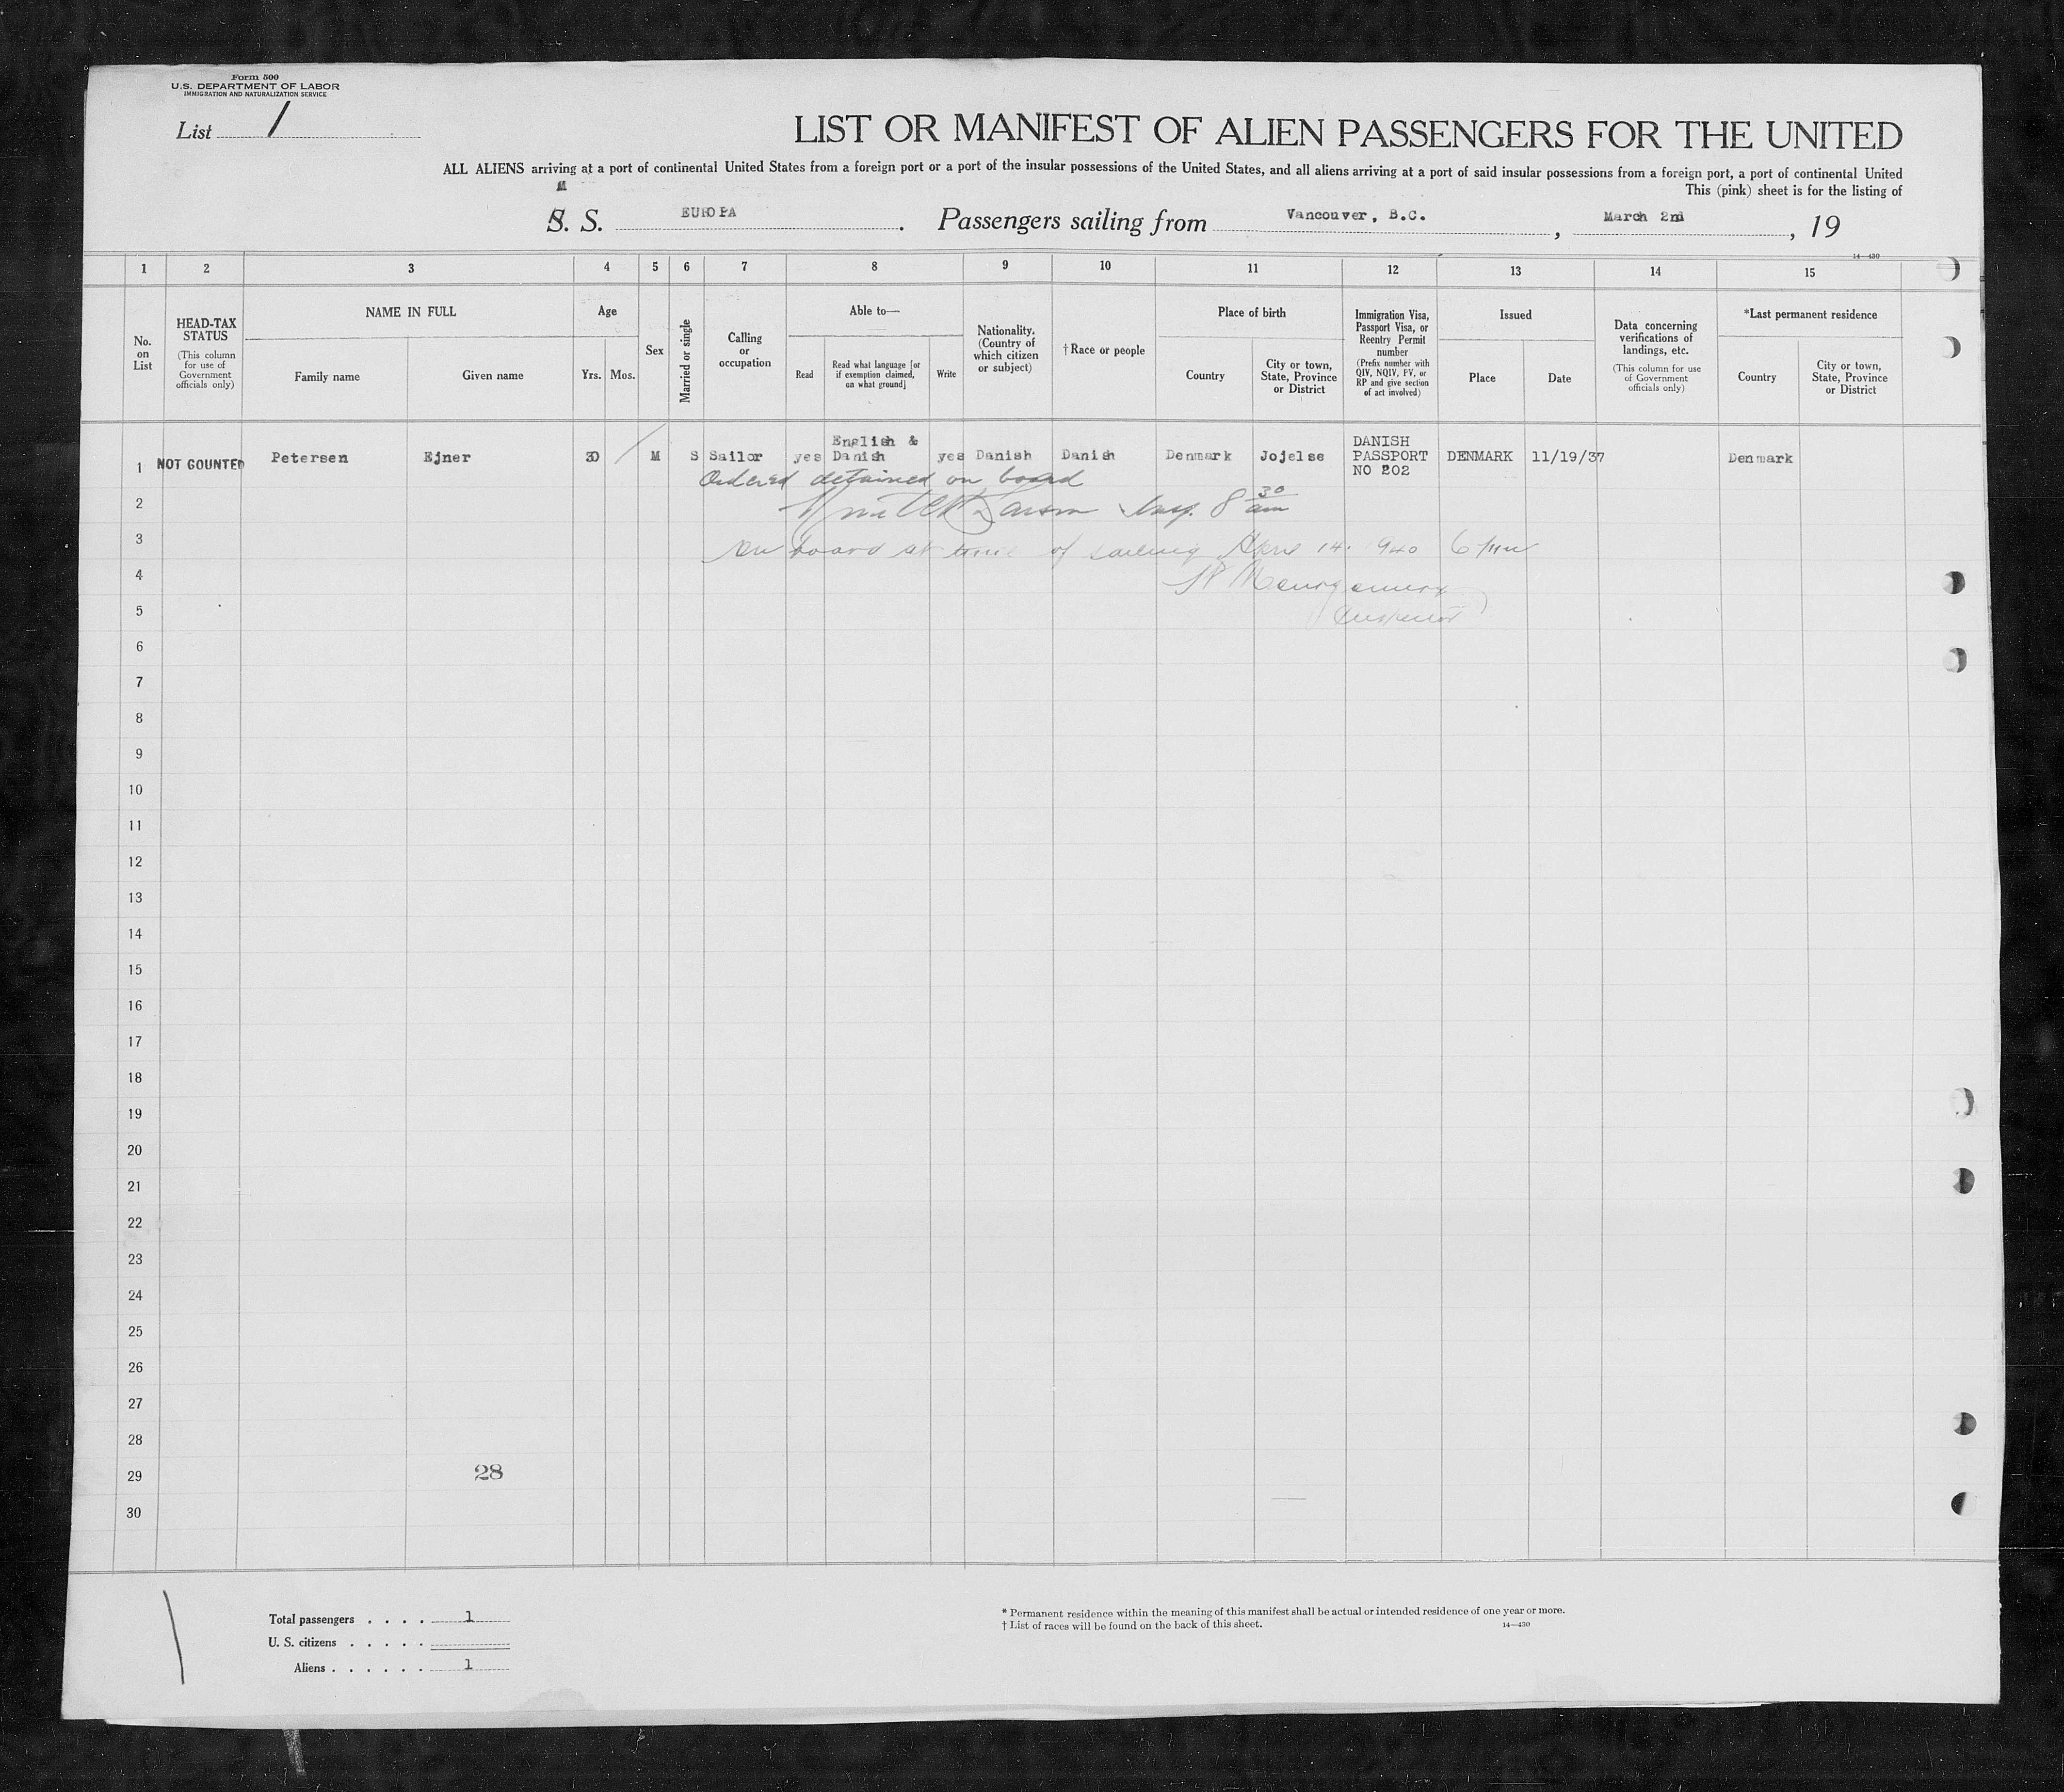 Form 500
U.S. DEPARTMENT OF LABOR
IMMIGRATION AND NATURALIZATION SERVICE
List 1
LIST OR MANIFEST OF ALIEN PASSENGERS FOR THE UNITED
ALL ALIENS arriving at a port of continental United States from a foreign port or a port of the insular possessions of the United States, and all aliens arriving at a port of said insular possessions from a foreign port, a port of continental United
This (pink) sheet is for the listing of
M
S. S. EUROPA. Passengers sailing from Vancouver, B.C., March 2nd, 19
14—430
1 2 3 4 5 6 7 8 9 10 11 12 13 14 15
No. on List
HEAD-TAX STATUS
(This column for use of Government officials only)
NAME IN FULL
Family name
Given name
Age
Yrs. Mos.
Sex
Married or single
Calling or occupation
Able to—
Read
Read what language [or if exemption claimed, on what ground]
Write
Nationality. (Country of which citizen or subject)
†Race or people
Place of birth
Country
City or town, State, Province or District
Immigration Visa, Passport Visa, or Reentry Permit number
(Prefix number with QIV, NQIV, PV, or RP and give section of act involved)
Issued
Place
Date
Data concerning verifications of landings, etc.
(This column for use of Government officials only)
*Last permanent residence
Country
City or town, State, Province or District
1 NOT COUNTED Petersen Ejner 30 M S Sailor yes English & Danish yes Danish Danish Denmark Jojelse DANISH PASSPORT NO 202 DENMARK 11/19/37 Denmark
Ordered detained on board
2 Larson Insp. 8 30 am
3 On board at time of sailing April 14. 1940 6 pm
4 Montgomery
5 Inspector
6
7
8
9
10
11
12
13
14
15
16
17
18
19
20
21
22
23
24
25
26
27
28
29 28
30
Total passengers . . . . 1
U. S. citizens . . . . .
Aliens . . . . . . 1
* Permanent residence within the meaning of this manifest shall be actual or intended residence of one year or more.
† List of races will be found on the back of this sheet. 14—430